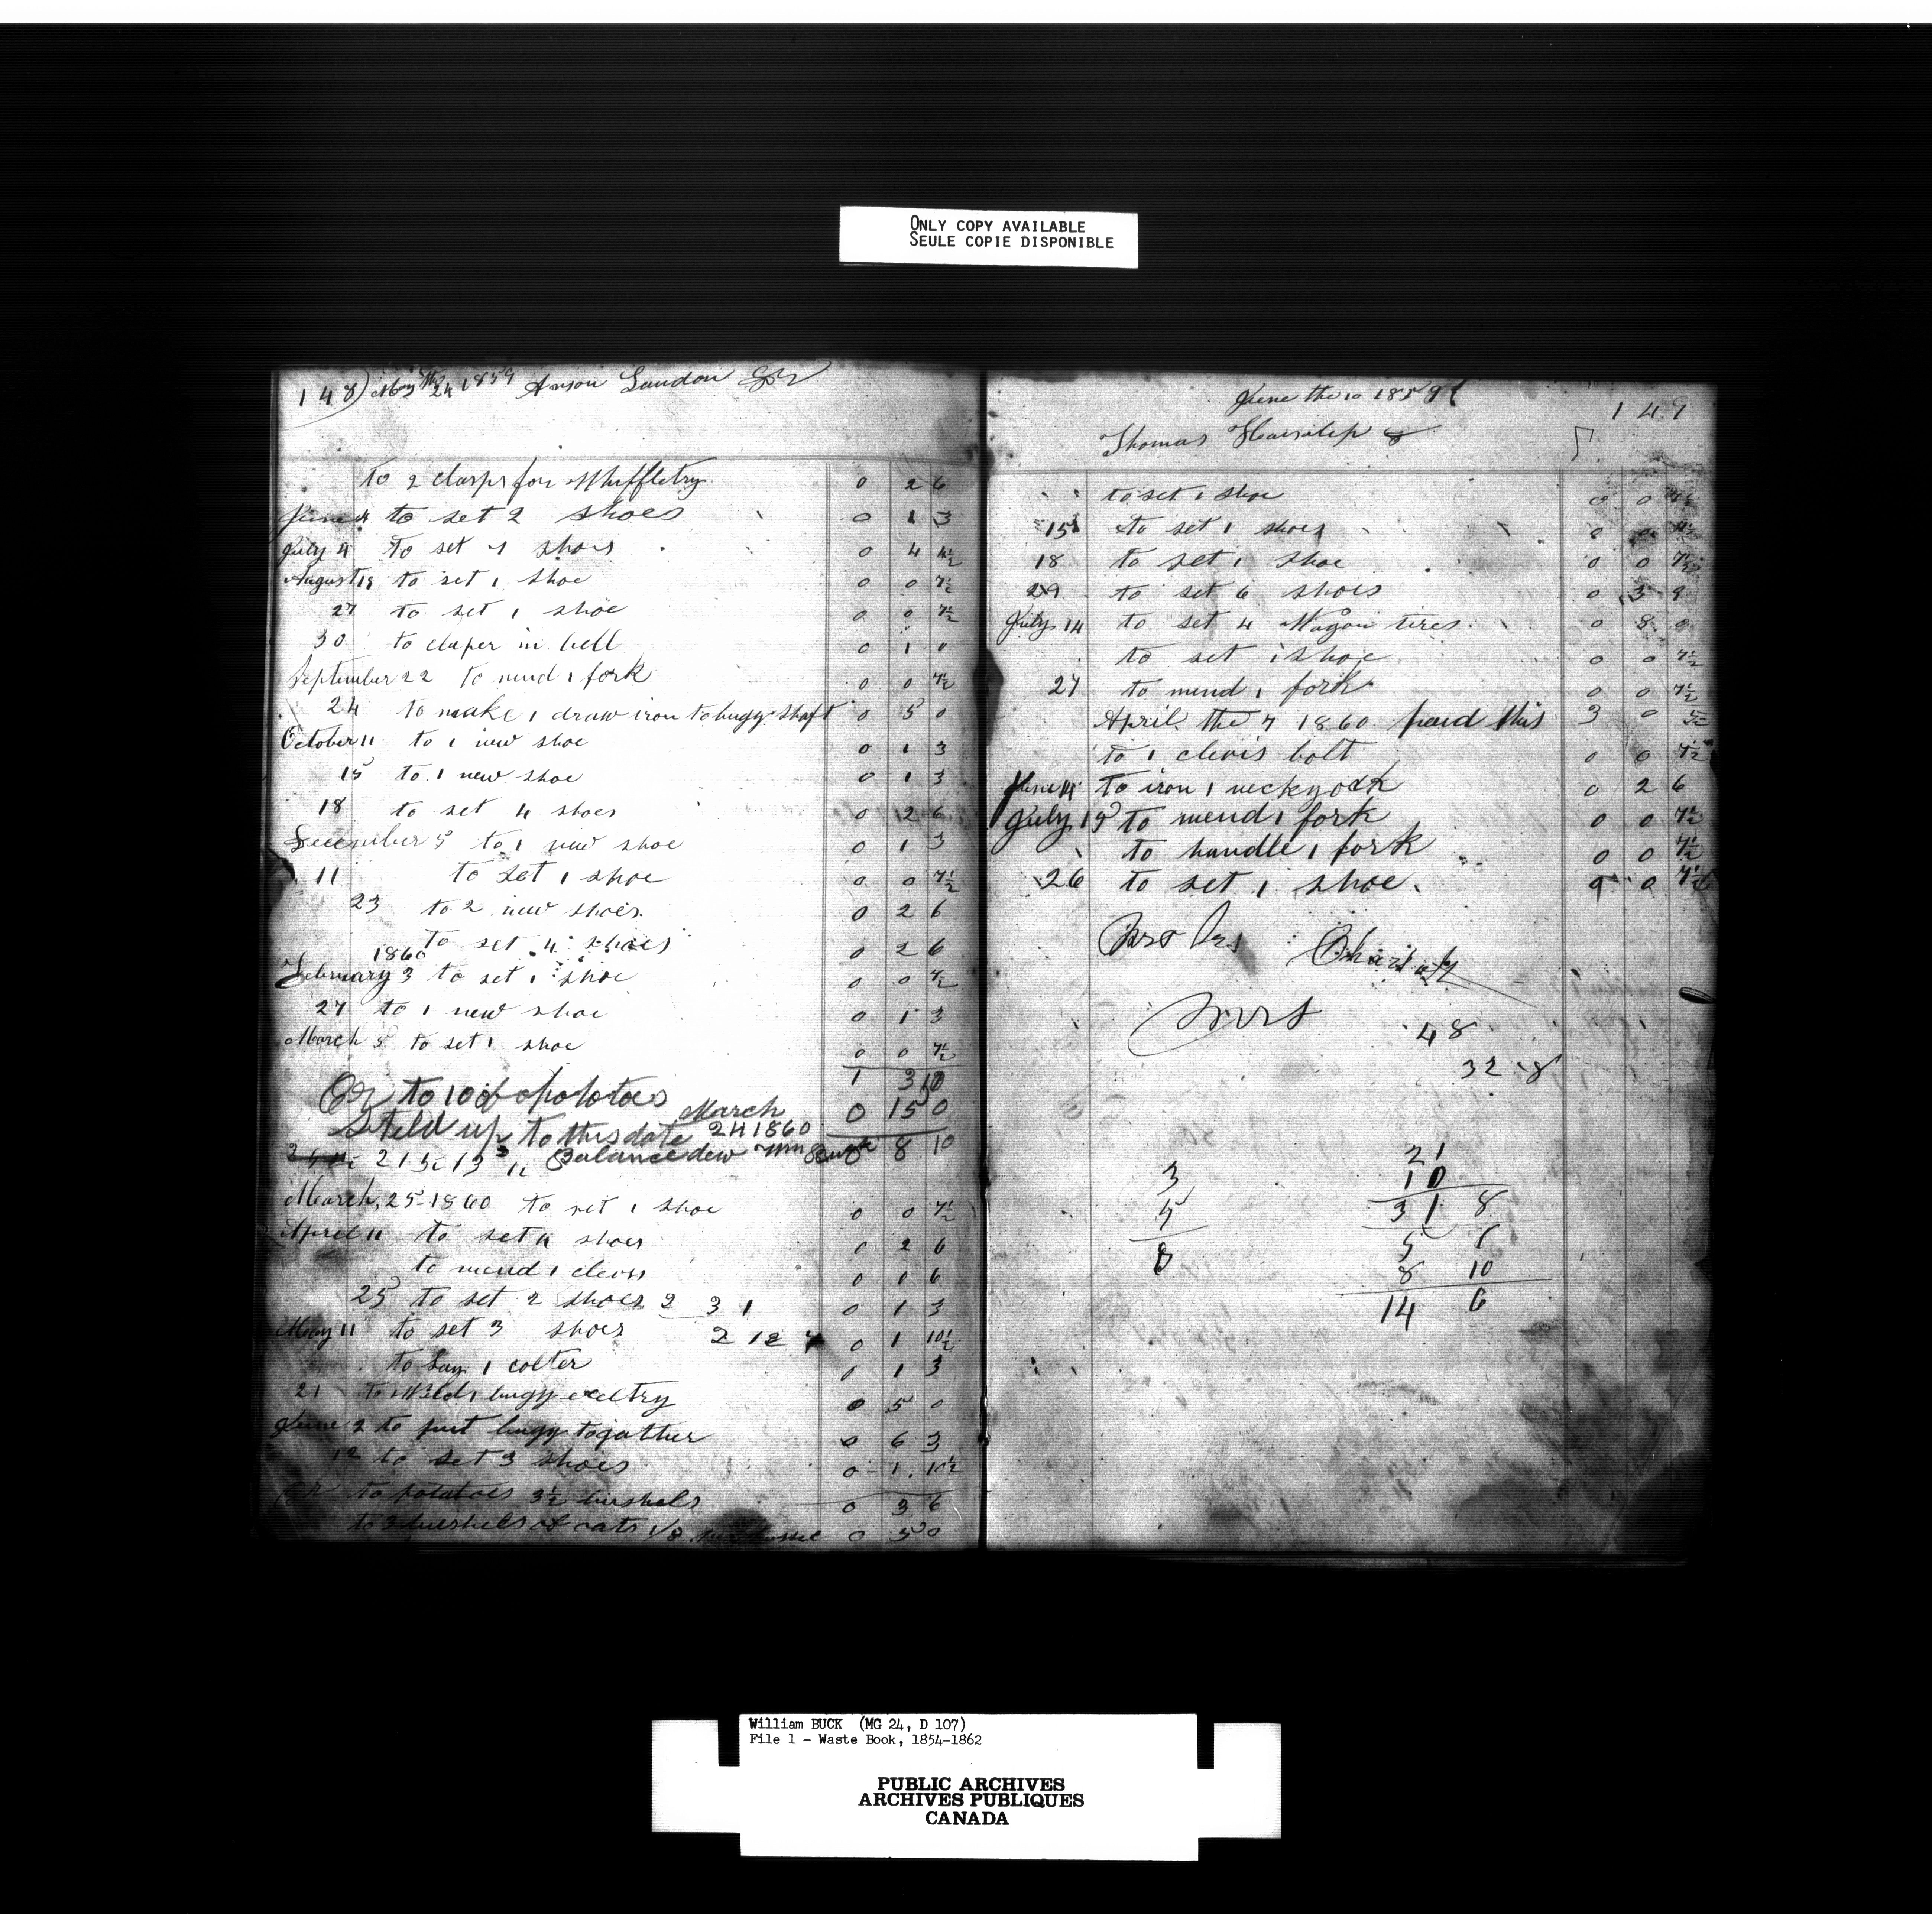 ONLY COPY AVAILABLE
SEULE COPIE DISPONIBLE
148) May the 24 1859 Anson Landon Dr
to 2 clasps for Whiffletry 0 2 6
June 4 to set 2 shoes 0 1 3
July 4 to set 7 shoes 0 4 4½
August 18 to set 1 shoe 0 0 7½
27 to set 1 shoe 0 0 7½
30 to claper in bell 0 1 0
September 22 to mend 1 fork 0 0 7½
24 to make 1 draw iron to bugy shaft 0 5 0
October 11 to 1 new shoe 0 1 3
15 to 1 new shoe 0 1 3
18 to set 4 shoes 0 2 6
December 5 to 1 new shoe 0 1 3
11 to set 1 shoe 0 0 7½
23 to 2 new shoes 0 2 6
to set 4 shoes 0 2 6
1860
February 3 to set 1 shoe 0 0 7½
27 to 1 new shoe 0 1 3
March 5 to set 1 shoe 0 0 7½
1 3 10
Cr to 10 of potatoes 0 15 0
Steld up to this date March 24 1860
Balance dew Wm Buck 8 10
March 25-1860 to set 1 shoe 0 0 7½
April 11 to set 4 shoes 0 2 6
to mend 1 clevis 0 0 6
25 to set 2 shoes 2 3 1 0 1 3
May 11 to set 3 shoes 2 12 7 0 1 10½
to Lay 1 colter 0 1 3
21 to Weld 1 bugy exeltry 0 5 0
June 2 to put bugy togather 0 6 3
12 to set 3 shoes 0 1 10½
Cr to potatoes 3½ bushels 0 3 6
to 3 bushels of oats 1/8 0 5 0
June the 10 1859 149
Thomas
to set 1 shoe 0 0 7½
15 to set 1 shoes 0 0 7½
18 to set 1 shoe 0 0 7½
29 to set 6 shoes 0 3 9
July 14 to set 4 Wagon tires 0 8 0
to set 1 shoe 0 0 7½
27 to mend 1 fork 0 0 7½
April the 7 1860 paid this 3 0
to 1 clevis bolt 0 0 7½
June 14 to iron 1 neckyock 0 2 6
July 19 to mend 1 fork 0 0 7½
to handle 1 fork 0 0 7½
26 to set 1 shoe. 0 0 7½
48
32 8
21
10
31 8
3
5
8
5 8
8 10
14 6
William BUCK (MG 24, D 107)
File 1 - Waste Book, 1854-1862
PUBLIC ARCHIVES
ARCHIVES PUBLIQUES
CANADA